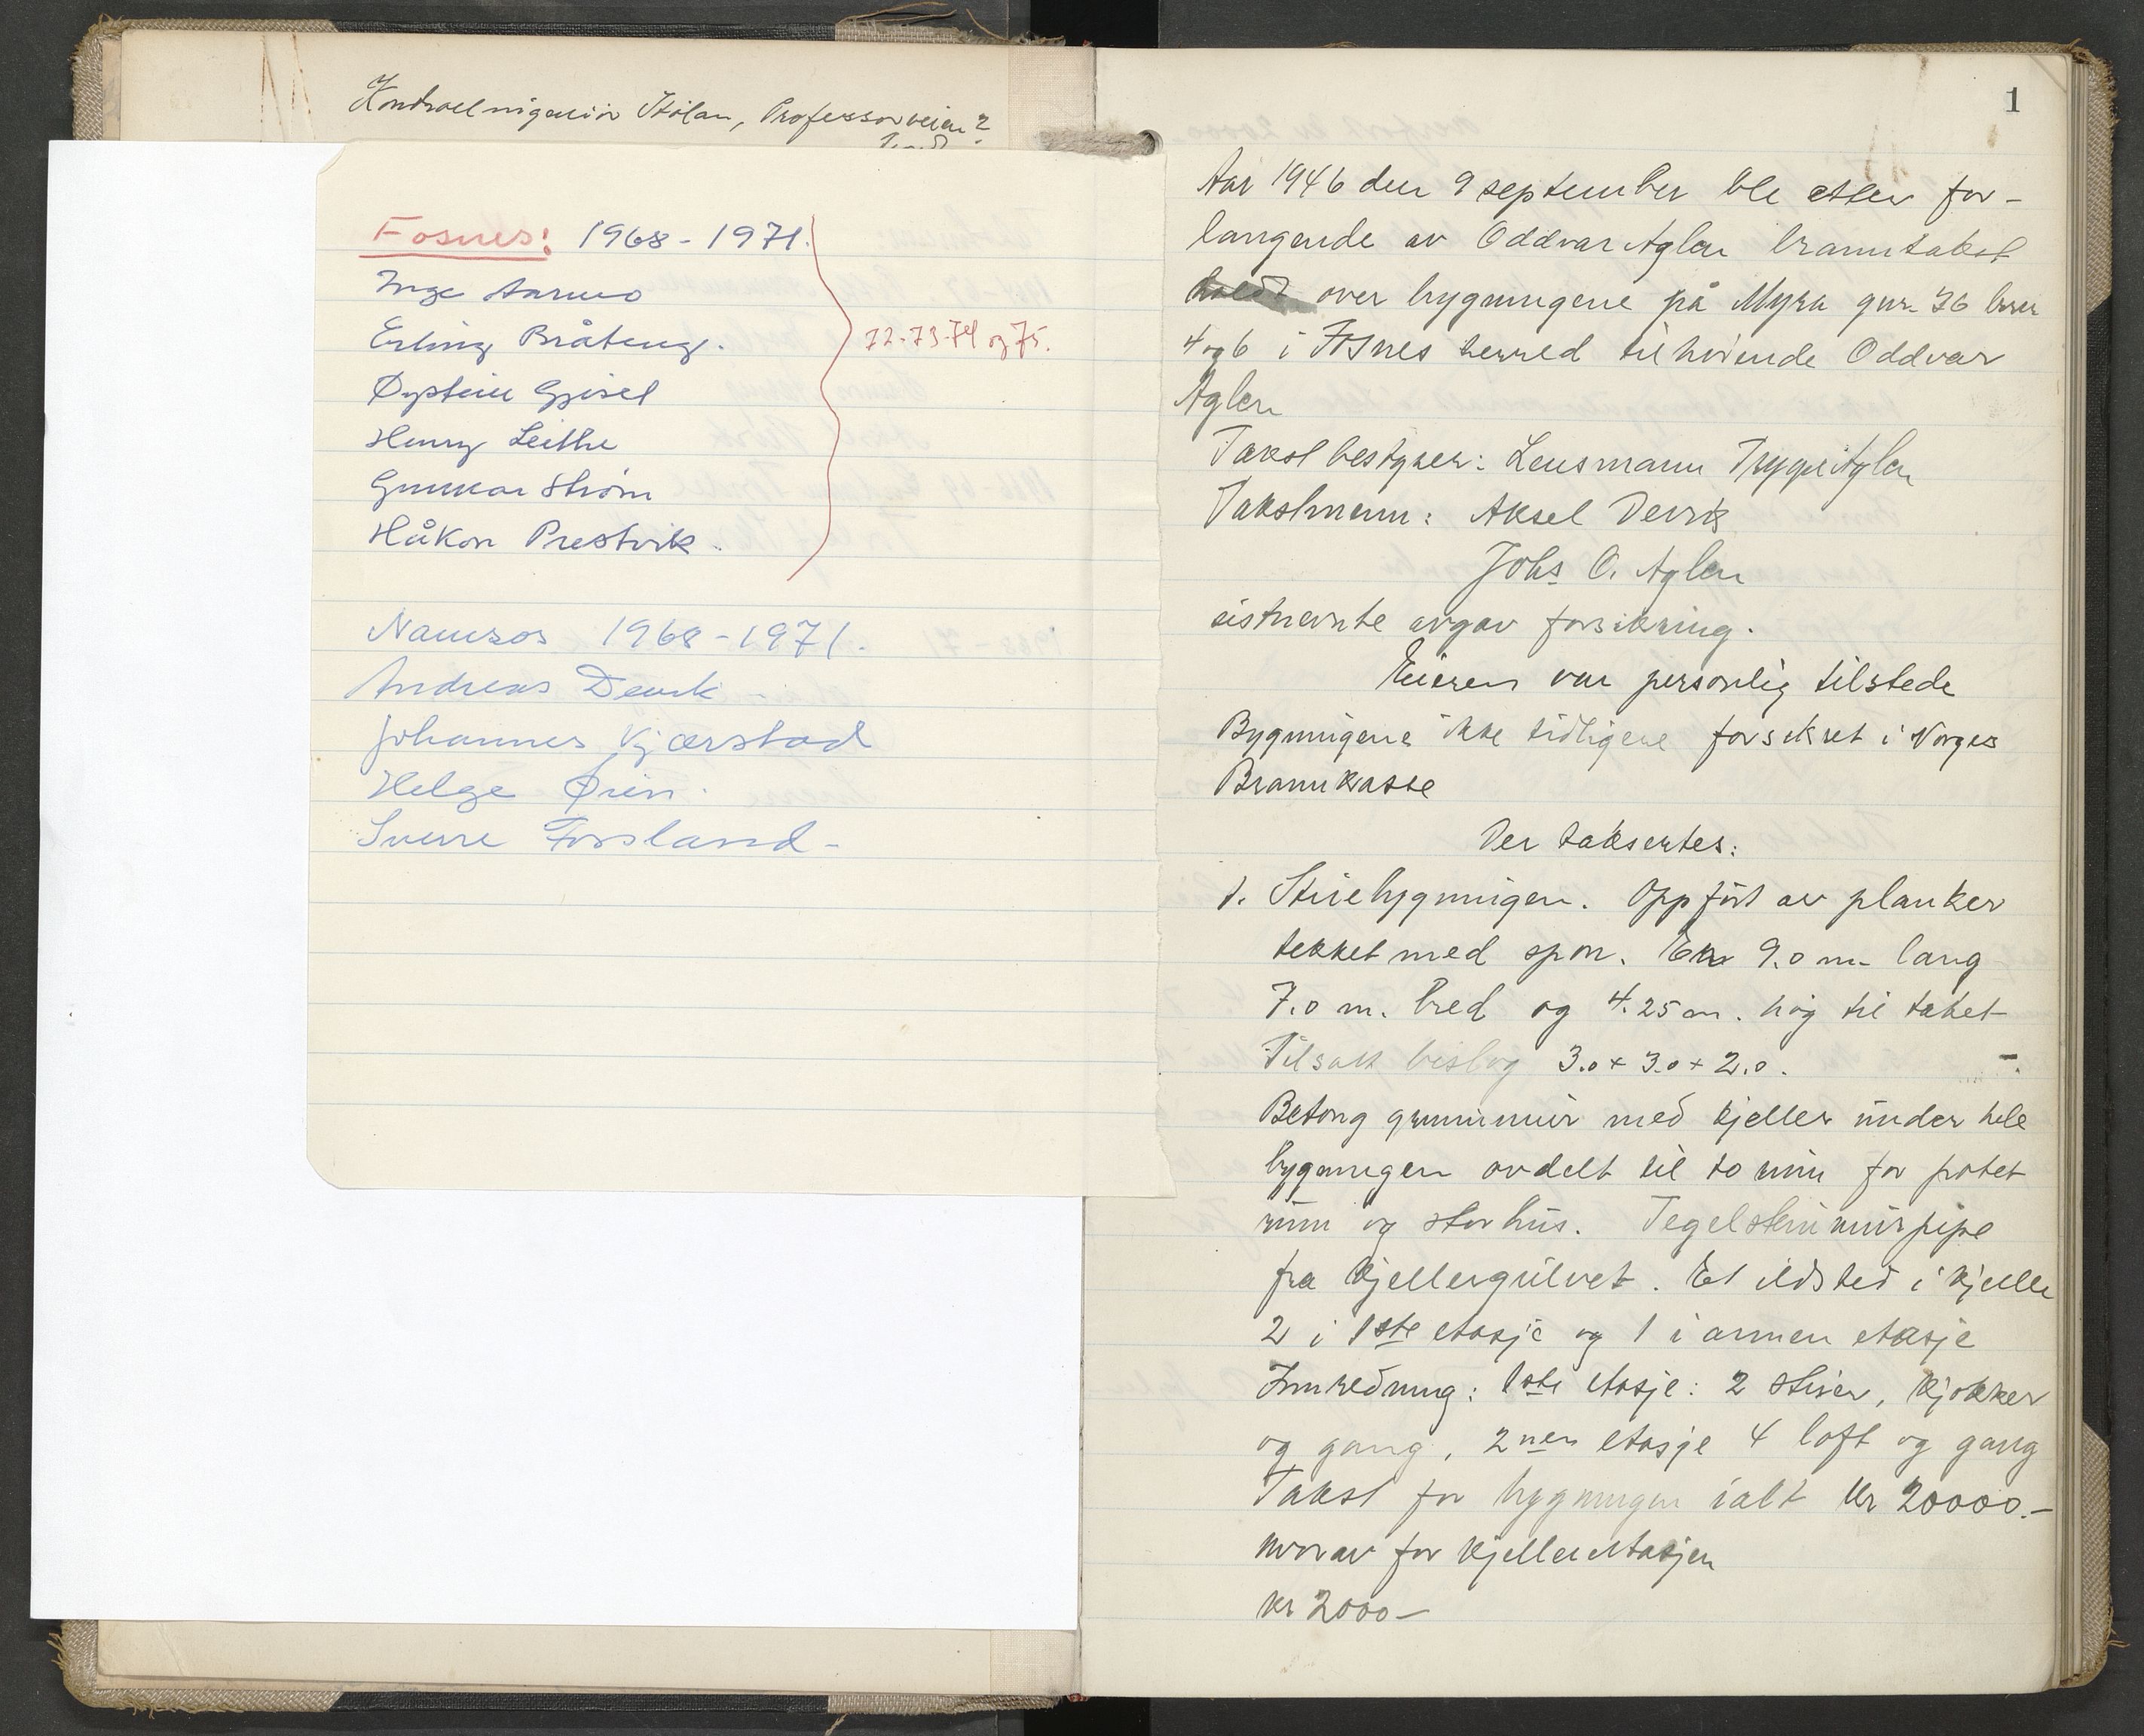 Kontrollingeniør Stølan, Professorveien 2
Fosnes: 1968 - 1971.
Inge Aarmo
Erling Bråteng.
72-73-74 og 75.
Øystein Gjisel
Henry Leithe
Gunnar Strøm
Håkon Prestvik.
Namsos 1968 - 1971.
Andreas Devik
Johannes Kjærstad
Helge Øien.
Sverre Forsland -
1
Aar 1946 den 9 september ble etter for-
langende av Oddvar Aglen branntakst
holdt over bygningene på Myra gnr. 36 bnr
4 og 6 i Fosnes herred tilhørende Oddvar
Aglen
Takstbestyrer: Lensmann Trygve Aglen
Takstmenn: Aksel Devik
Johs O. Aglen
sistnevnte avgav forsikring.
Eieren var personlig tilstede
Bygningene ikke tidligere forsikret i Norges
Brannkasse
Der taksertes:
1. Stuebygningen. Oppført av planker
tekket med spon. Er 9.0 m. lang
7.0 m. bred og 4.25 m. høg til taket
Tilsatt bislag 3.0 + 3.0 + 2.0.
Betong grunnmur med kjeller under hele
bygningen avdelt til to rum for potet
rum og storhus. Tegelsteinmurpipe
fra kjellergulvet. Et ildsted i kjeller
2 i 1ste etasje og 1 i annen etasje
Innredning: 1ste etasje: 2 stuer, kjøkken
og gang, 2nen etasje 4 loft og gang
Takst for bygningen ialt kr 20000.-
hvorav for kjelleretasjen
kr 2000 -